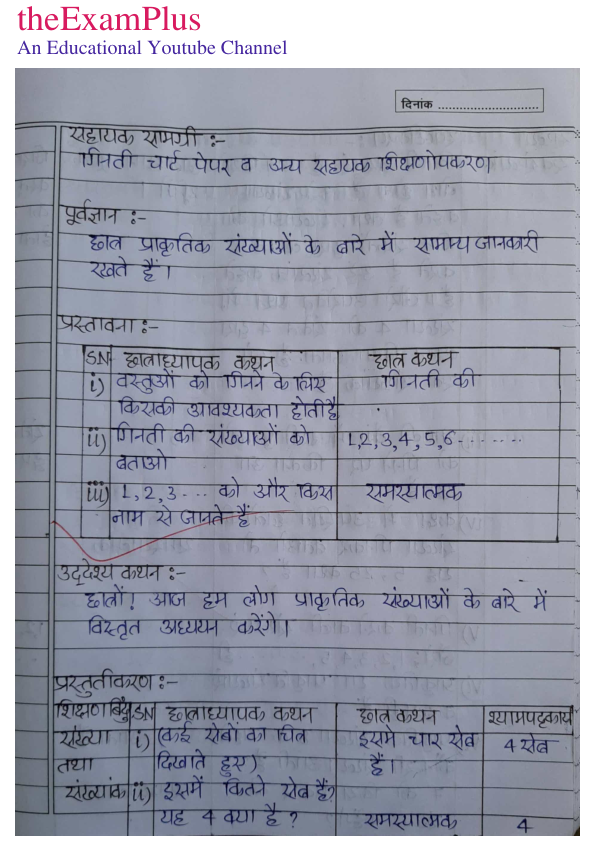 theExamPlus
An Educational Youtube Channel
दिनांक ............................
सहायक सामग्री :-
गिनती चार्ट पेपर व अन्य सहायक शिक्षणोपकरण।
पूर्वज्ञान :-
छात्र प्राकृतिक संख्याओं के बारे में सामान्य जानकारी
रखते हैं।
प्रस्तावना :-
SN छात्राध्यापक कथन छात्र कथन
i) वस्तुओं को गिनने के लिए गिनती की
किसकी आवश्यकता होती है
ii) गिनती की संख्याओं को 1,2,3,4,5,6.......
बताओ
iii) 1,2,3... को और किस समस्यात्मक
नाम से जानते हैं
उद्देश्य कथन :-
छात्रों! आज हम लोग प्राकृतिक संख्याओं के बारे में
विस्तृत अध्ययन करेंगे।
प्रस्तुतीकरण :-
शिक्षण बिंदु SN छात्राध्यापक कथन छात्र कथन श्यामपट्टकार्य
संख्या i) (कई सेबों का चित्र इसमे चार सेब 4 सेब
तथा दिखाते हुए) हैं।
संख्यांक ii) इसमें कितने सेब हैं?
यह 4 क्या है? समस्यात्मक 4